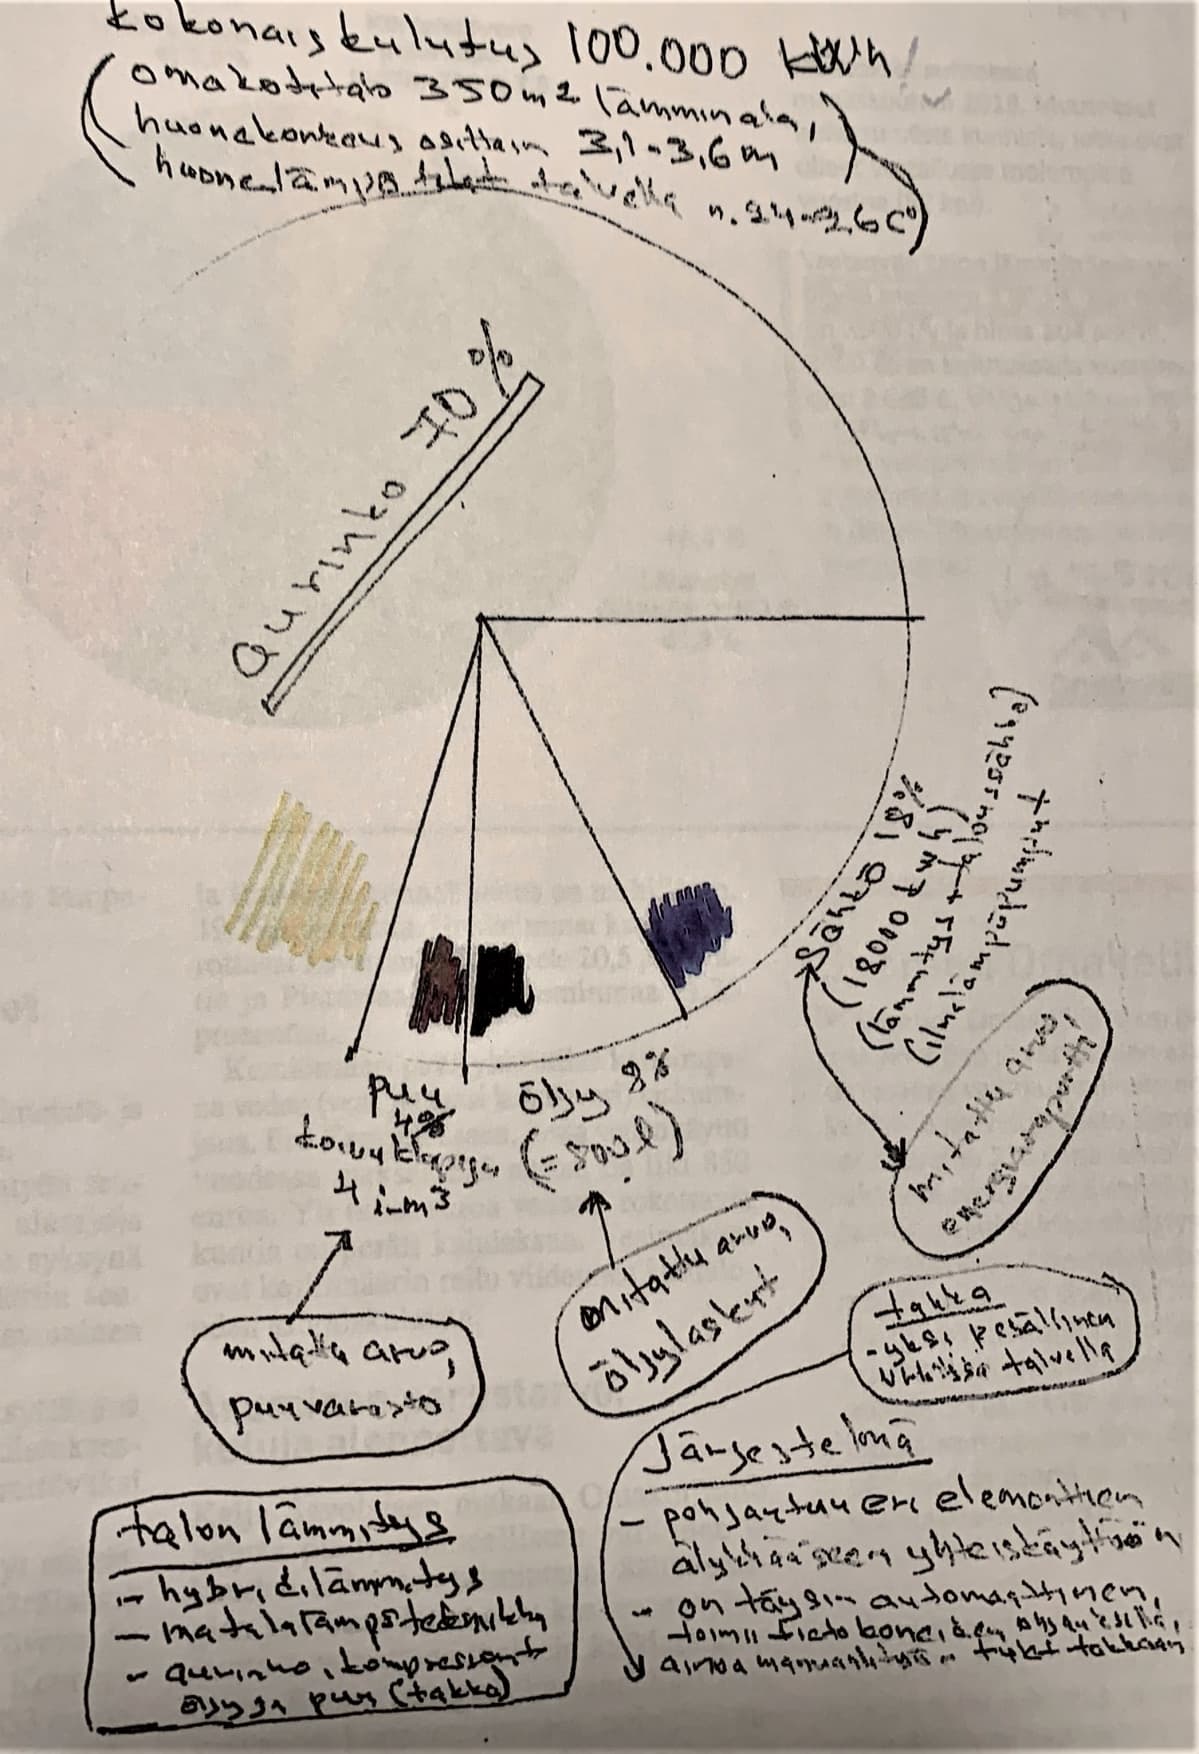 kokonaiskulutus 100.000 kWh
(omakotitalo 350m2 lämmінala,
huonekorkeus osittain 3,1-3,6m
huonelämpö talvella n. 24-26 C°)
aurinko 70%
Sähkö 18%
(18000 kWh)
(lämmitys + taloussähkö)
(ilmalämpöpumput
mitattu arvo,
puu
4%
koivuklapeja
4 i-m3
öljy 8%
(=800 l)
mitattu arvo,
puuvarasto
mitattu arvo,
öljylaskut
takka
- yksi pesällinen
talvella
talon lämmitys
- hybridilämmitys
- matalalämpötekniikka
- aurinko, kompressorit
öljy ja puu (takka)
Järjestelmä
- pohjautuu eri elementtien
älykkääseen yhteiskäyttöön
- on täysin automaattinen,
toimii tietokoneiden ohjauksella,
ainoa manuaalityö - tulet takkaan